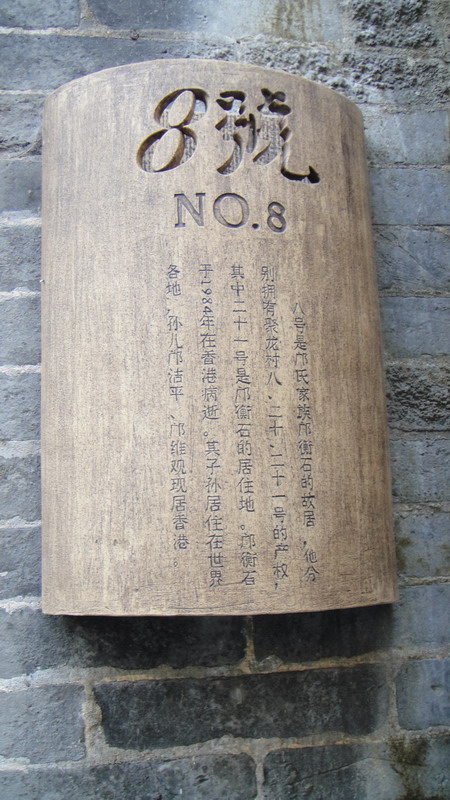 8號
NO.8
八号是邝氏家族邝衡石的故居，他分
别拥有聚龙村八、二十、二十一号的产权，
其中二十一号是邝衡石的居住地。邝衡石
于1984年在香港病逝。其子孙居住在世界
各地，孙儿邝洁平、邝维观现居香港。